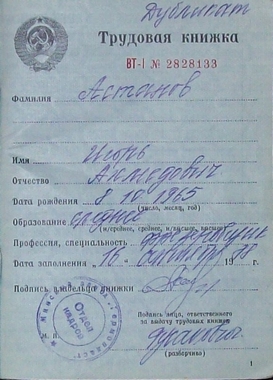 Дубликат
Трудовая книжка
ВТ-I № 2828133
Фамилия Астанов
Имя Игорь
Отчество Ахмедович
Дата рождения 8 10 1965
(число, месяц, год)
Образование среднее
Профессия, специальность
Дата заполнения 16 октября 19
Подпись владельца книжки
Подпись лица, ответственного
за выдачу трудовых книжек
Отдел
кадров
М. П.
(разборчиво)
1